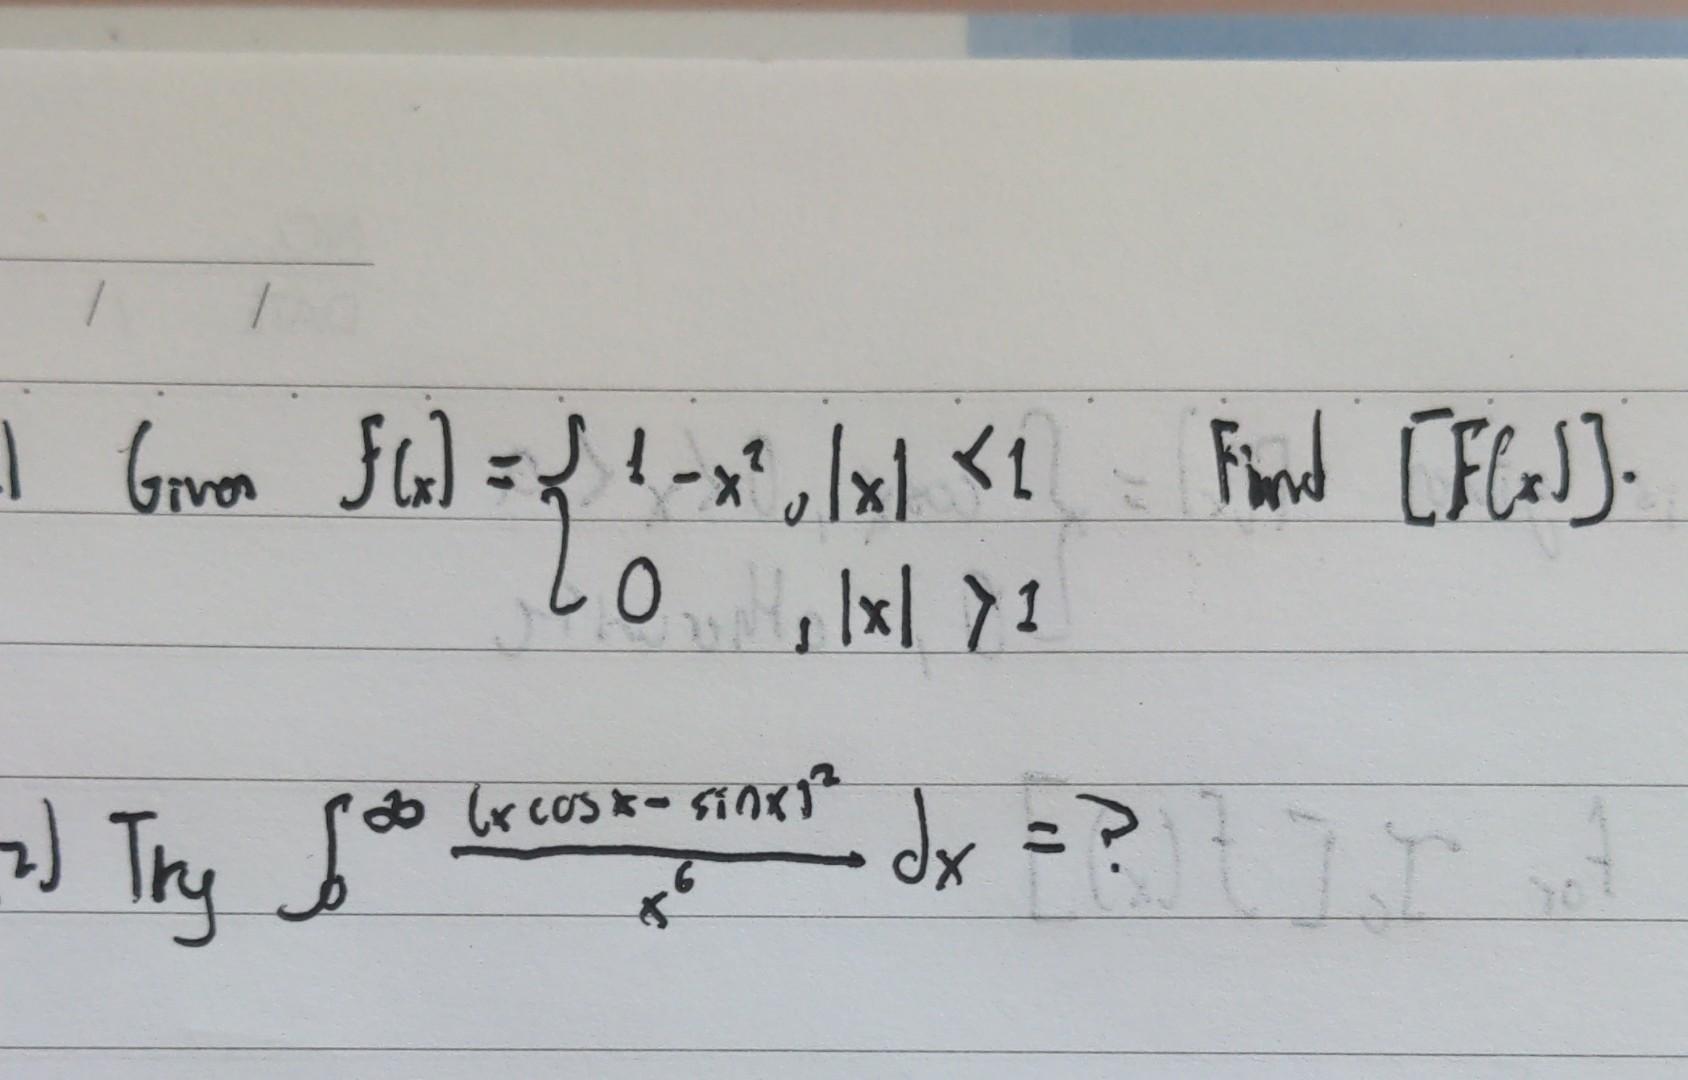 1) Given f(x) = { 1 - x², |x| < 1 Find [F(x)].
0 , |x| > 1
2) Try ∫₀^∞ (x cos x - sin x)² / x⁶ dx = ?